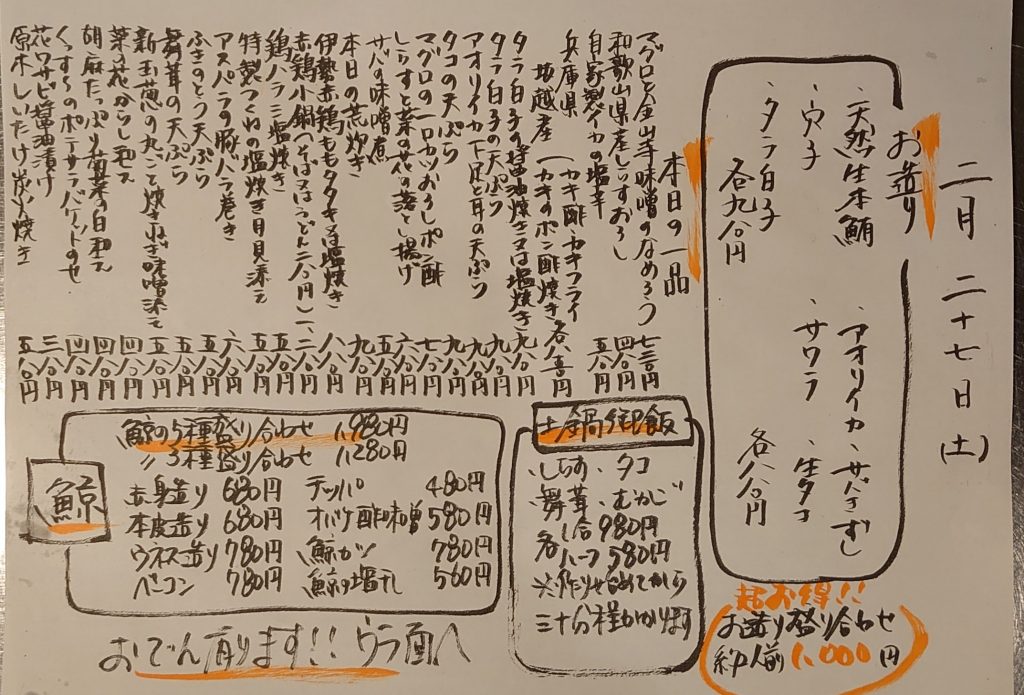 二月二十七日(土)
お造り
、天然生本鮪
、穴子
、タラ白子
各九八〇円
、アオリイカ、サバきずし
、サワラ、生タコ
各八八〇円
超お得!!
お造り盛り合わせ
約1人前1,000円
本日の一品
マグロと金山寺味噌のなめろう 七三〇円
和歌山県産しらすおろし 四八〇円
自家製イカの塩辛 五八〇円
兵庫県坂越産(カキ酢 カキフライ カキのポン酢焼き 各八三〇円
タラ白子の醤油焼き又は塩焼き 九八〇円
タラ白子の天ぷら 九八〇円
アオリイカ下足と耳の天ぷら 九八〇円
タコの天ぷら 九八〇円
マグロの一口カツおろしポン酢 七八〇円
しらすと菜の花の落とし揚げ 六八〇円
サバの味噌煮 五八〇円
本日の荒炊き 九八〇円
伊勢赤鶏ももタタキ又は塩焼き 八八〇円
赤鶏小鍋(そば又はうどん二八〇円) 一、二八〇円
鶏ハラミ塩焼き 五八〇円
特製つくねの塩焼き月見添え 五八〇円
アスパラの豚バラ巻き 六八〇円
ふきのとう天ぷら 五八〇円
舞茸の天ぷら 五八〇円
新玉葱の丸ごと焼きねぎ味噌添え 五八〇円
菜の花からし和え 四八〇円
胡麻たっぷり春菊の白和え 四八〇円
くんせいのポテサラバゲットのせ 四八〇円
花ワサビ醤油漬け 三八〇円
原木しいたけ炭火焼き 五八〇円
土鍋御飯
、しらす、タコ
舞茸、むかご
各 1合980円
ハーフ580円
※作りせ始めてから
三十分程かかります
鯨
鯨の5種盛り合わせ 1,980円
〃3種盛り合わせ 1,280円
赤身造り 680円 テッパ 480円
本皮造り 680円 オバケ酢味噌 580円
ウネス造り 780円 鯨カツ 780円
ベーコン 780円 鯨の塩干し 560円
おでん有ります!!ウラ面へ